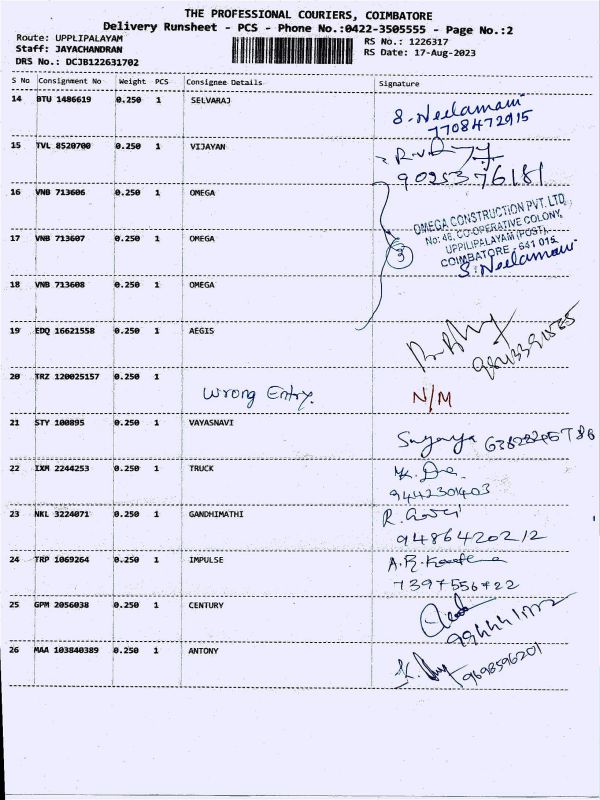 THE PROFESSIONAL COURIERS, COIMBATORE
Delivery Runsheet - PCS - Phone No.:0422-3505555 - Page No.:2
Route: UPPLIPALAYAM
RS No.: 1226317
Staff: JAYACHANDRAN
RS Date: 17-Aug-2023
DRS No.: DCJB122631702
S No Consignment No Weight PCS Consignee Details Signature
14 BTU 1486619 0.250 1 SELVARAJ
S. Neelamani
7708472915
15 TVL 8520700 0.250 1 VIJAYAN
9025376181
16 VNB 713606 0.250 1 OMEGA
OMEGA CONSTRUCTION PVT. LTD.,
No: 46, CO-OPERATIVE COLONY,
17 VNB 713607 0.250 1 OMEGA
UPPILIPALAYAM (POST),
COIMBATORE - 641 015.
3
S. Neelamani
18 VNB 713608 0.250 1 OMEGA
19 EDQ 16621558 0.250 1 AEGIS
20 TRZ 120025157 0.250 1
Wrong Entry. N/M
21 STY 100895 0.250 1 VAYASNAVI
22 IXM 2244253 0.250 1 TRUCK
9442301403
23 NKL 3224071 0.250 1 GANDHIMATHI
9486420212
24 TRP 1069264 0.250 1 IMPULSE
7397556722
25 GPM 2056038 0.250 1 CENTURY
26 MAA 103840389 0.250 1 ANTONY
9698596201